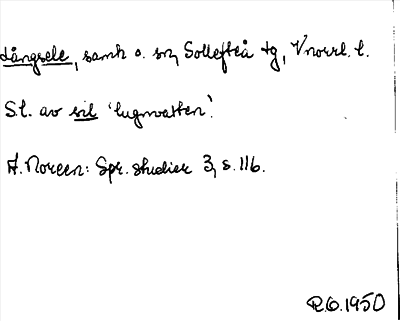 Långsele, samh o. sn, Sollefteå tg, Vnorrl. l.
S.l. av sil 'lugnvatten'.
A. Noreen: Spr. studier 3, s. 116.
R.O. 1950